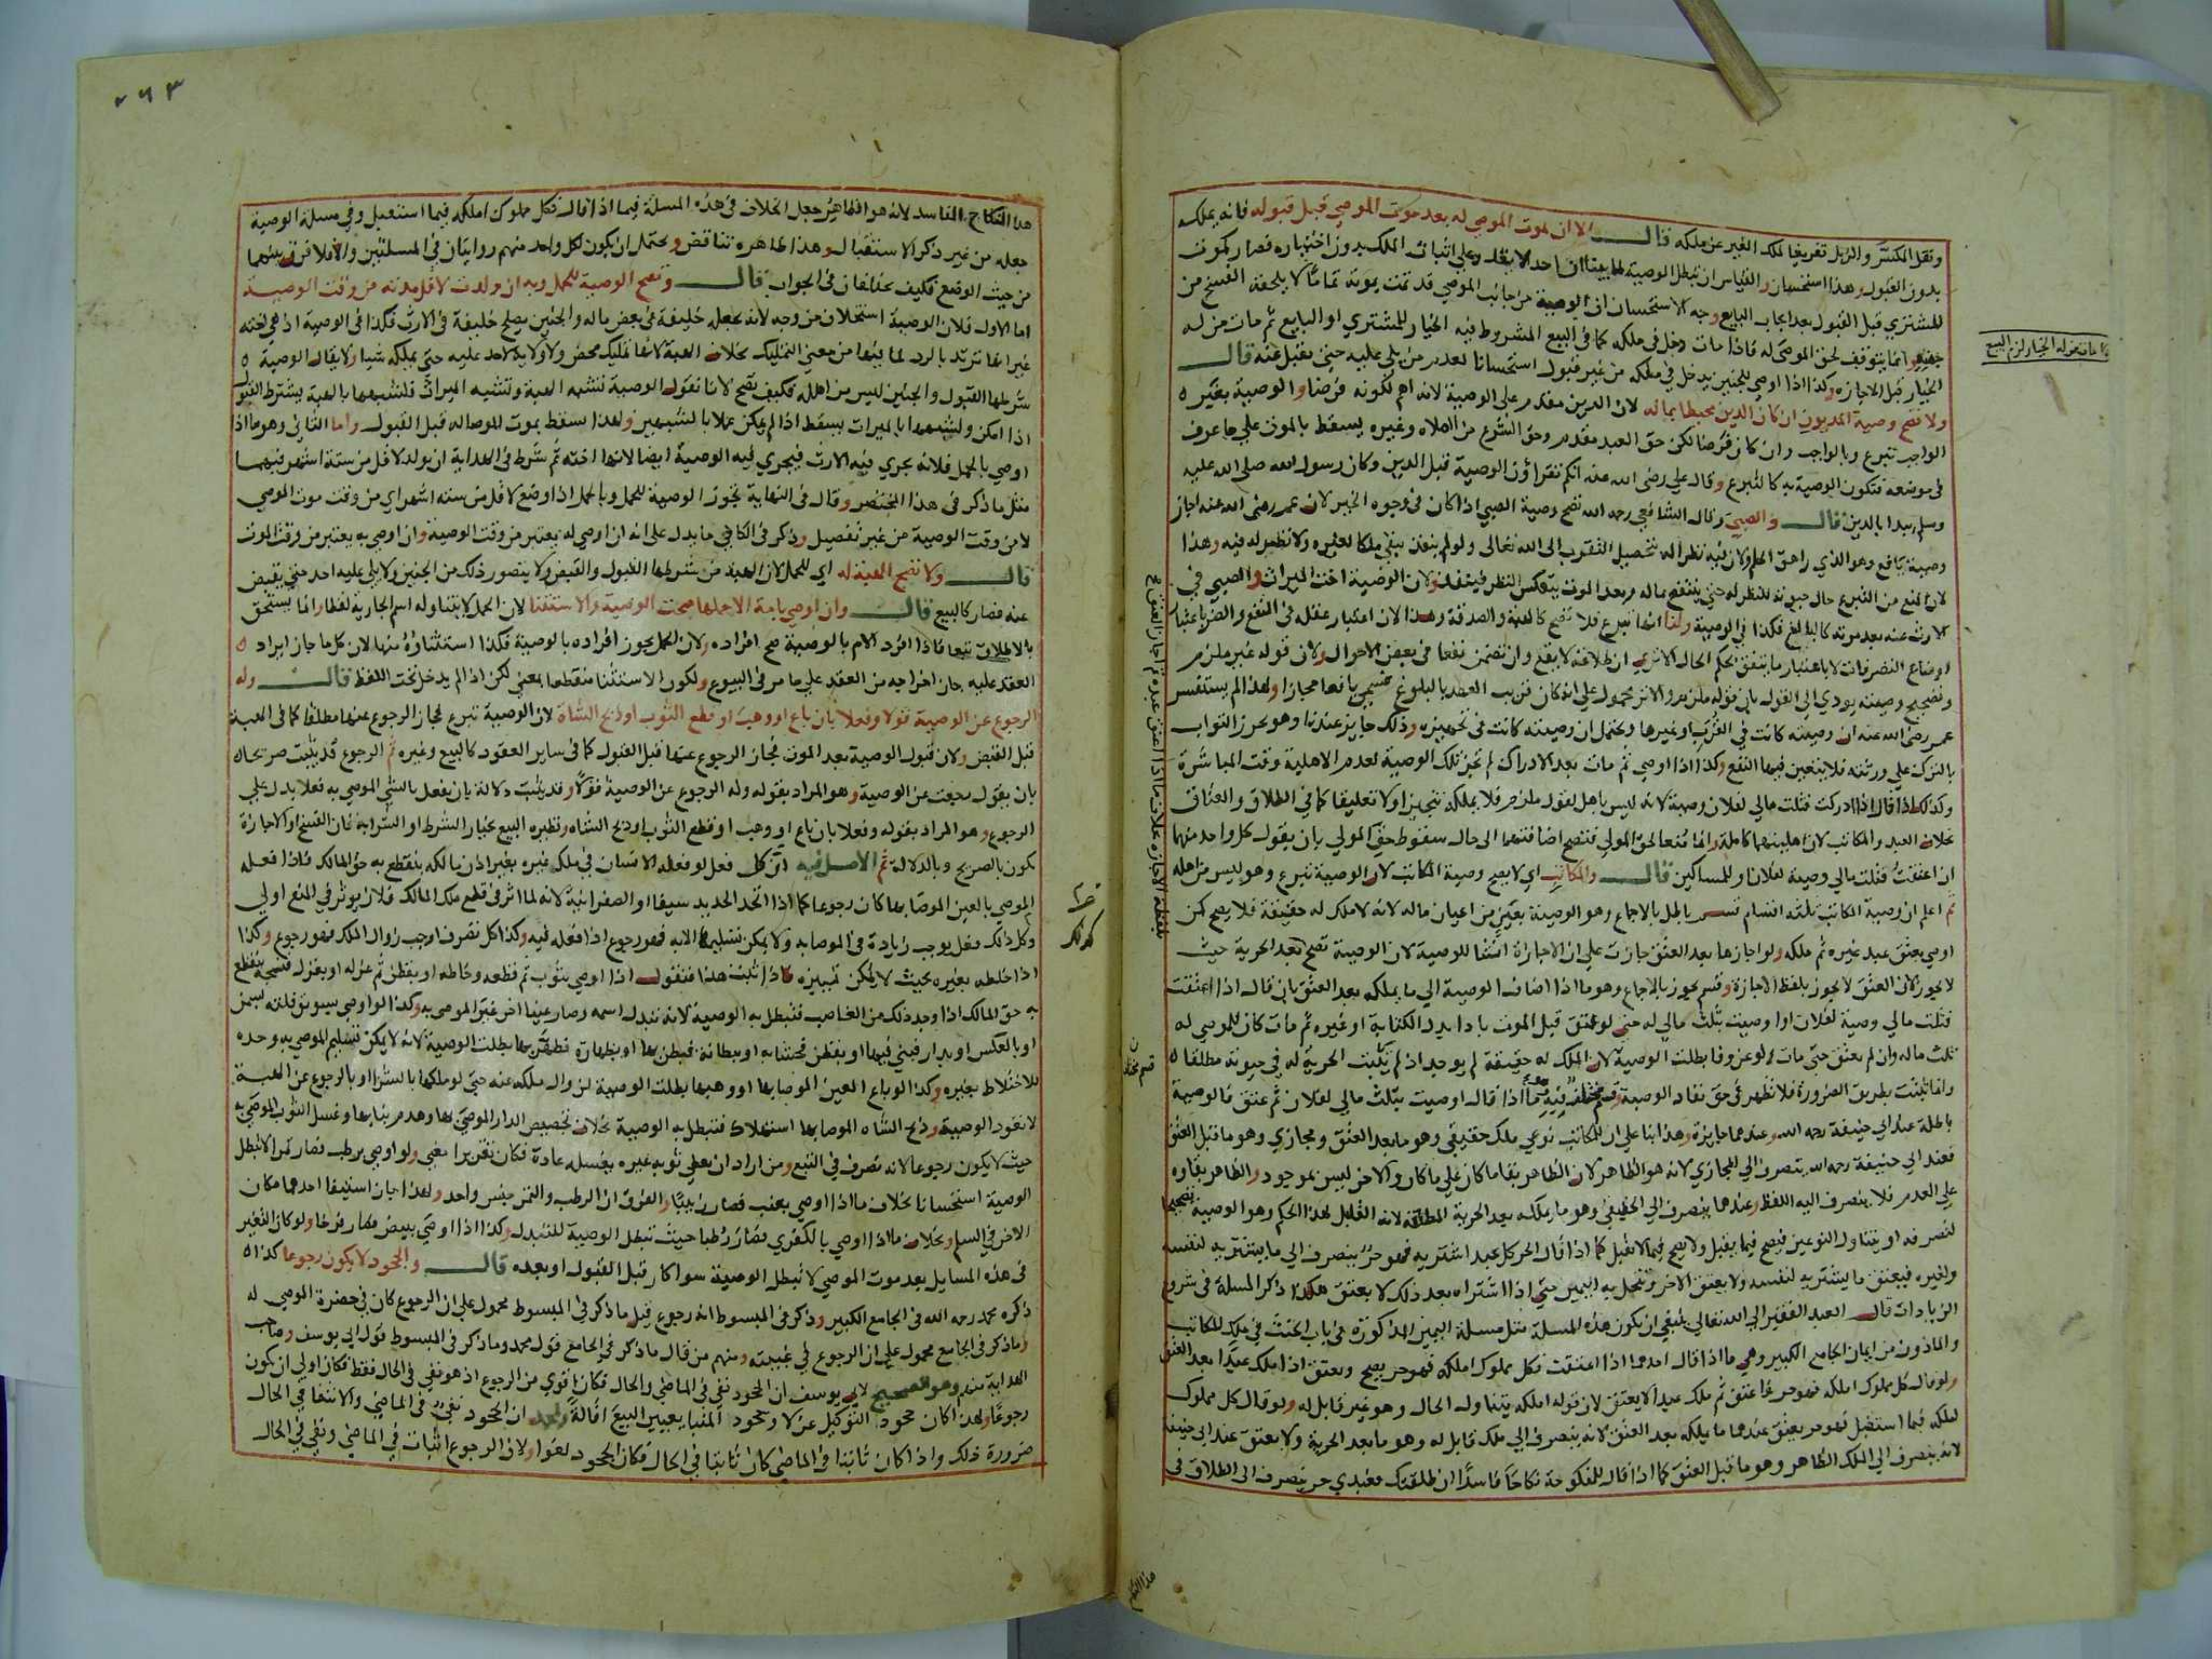 ونقل المكسر والزبل تفريغا ملك الغير عن ملكه قال الا ان يموت الموصي له بعد موت الموصي قبل قبوله فانه يملكه
بدون القبول وهذا استحسان والقياس ان تبطل الوصية لما بينا ان احدا لا يقدر على اثبات الملك بدون اختياره فصار كموت
المشتري قبل القبول بعد ايجاب البايع وجه الاستحسان ان الوصية من جانب الموصي قد تمت بموته تماما لا يلحقه الفسخ من
جهته وانما يتوقف لحق الموصى له فاذا مات دخل في ملكه كما في البيع المشروط فيه الخيار للمشتري او البايع ثم مات من له
الخيار قبل الاجازه وكذا اذا اوصي للجنين يدخل في ملكه من غير قبول استحسانا لعدم من يلي عليه حتى يقبل عنه قال
ولا تصح وصية المديون ان كان الدين محيطا بماله لان الدين مقدم على الوصية لانه اهم لكونه فرضا والوصية بغير
الواجب تبرع وبالواجب وان كان فرضا لكن حق العبد مقدم وحق الشرع من الصلاه وغيره يسقط بالموت على ما عرف
في موضعه فتكون الوصية به كالتبرع وقال علي رضى الله عنه انكم تقراؤن الوصية قبل الدين وكان رسول الله صلى الله عليه
وسلم يبدا بالدين قال والصبي وقال الشافعي رحمه الله تصح وصية الصبي اذا كان في وجوه الخير لان عمر رضى الله عنه اجاز
وصية يافع وهو الذي راهق الحلم ولان فيه نظرا له بتحصيل التقرب الى الله تعالى ولو لم ينفذ يبقى ملكا لغيره ولا نظر له فيه وهذا
لان المنع من التبرع حال حيوته للنظر له حتى ينتفع بماله وبعد الموت ينعكس النظر فينفذ ولان الوصية اخت الميراث والصبي في
الارث عنه بعد موته كالبالغ فكذا في الوصية ولنا انها تبرع فلا تصح كالهبة والصدقة وهذا لان اعتبار عقله في النفع والضر باعتبار
اوضاع التصرفات لا باعتبار ما يتفق بحكم الحال الا ترى ان طلاقه لا يقع وان تضمن نفعا في بعض الاحوال ولان قوله غير ملزم
وتصحيح وصيته يودي الى القول بان قوله ملزم والاثر محمول على انه كان قريب العهد بالبلوغ فسمى يافعا مجازا ولهذا لم يستفسر
عمر رضى الله عنه ان وصيته كانت في القرب او غيرها ويحتمل ان وصيته كانت في تجهيزه وذلك جايز عندنا وهو يحرز الثواب
بالترك على ورثته فلا يتعين فيها النفع وكذا اذا اوصي ثم مات بعد الادراك لم تجز تلك الوصية لعدم الاهلية وقت المباشرة
وكذلك اذا قال اذا ادركت فثلث مالي لفلان وصية لانه ليس باهل لقول ملزم فلا يملكه تنجيزا ولا تعليقا كما في الطلاق والعتاق
بخلاف العبد والمكاتب لان اهليتهما كاملة وانما منعا لحق المولى فتصح اضافتهما الى حال سقوط حق المولى بان يقول كل واحد منهما
ان اعتقت فثلث مالي وصية لفلان او للمساكين قال والمكاتب اي لا يصح وصية المكاتب لان الوصية تبرع وهو ليس من اهله
ثم اعلم ان وصية المكاتب ثلثه اقسام قسم باطل بالاجماع وهو الوصية بعين من اعيان ماله لانه لا ملك له حقيقة فلا يصح كمن
اوصي بعتق عبد غيره ثم ملكه ولو اجازها بعد العتق جازت على ان الاجازة انشا للوصية لان الوصية تصح بعد الحرية حيث
لا يجوز لان العتق لا يجوز بلفظ الاجازة وقسم يجوز بالاجماع وهو ما اذا اضاف الوصية الى ما يملكه بعد العتق بان قال اذا اعتقت
فثلث مالي وصية لفلان او اوصيت بثلث مالي له حتى لو عتق قبل الموت باداء بدل الكتابة او غيره ثم مات كان للموصى له
ثلث ماله وان لم يعتق حتى مات ولو عن وفا بطلت الوصية لان الملك له حقيقة لم يوجد اذ لم يثبت الحرية له في حيوته مطلقا
وانما ثبتت بطريق الضرورة فلا تظهر في حق نفاذ الوصية وقسم مختلف فيه وهو ما اذا قال اوصيت بثلث مالي لفلان ثم عتق فالوصية
باطلة عند ابي حنيفة رحمه الله وعندهما جايزة وهذا بنا على ان للمكاتب نوعي ملك حقيقي وهو ما بعد العتق ومجازي وهو ما قبل العتق
فعند ابي حنيفة رحمه الله يتصرف الى المجازي لانه هو الظاهر لان الظاهر بقا ما كان على ما كان والاخر ليس بموجود والظاهر بقاوه
على العدم فلا ينصرف اليه اللفظ وعندهما ينصرف الى الحقيقي وهو ما يملكه بعد الحرية المطلقة لانه القابل لهذا الحكم وهو الوصية تصحيحا
لتصرفه او يتناول النوعين فيصح فيما يقبل ولا يصح فيما لا يقبل كما اذا قال الحر كل عبد اشتريه فهو حر ينصرف الى ما يشتريه لنفسه
ولغيره فيعتق ما يشتريه لنفسه ولا يعتق الاخر وتنحل به اليمين حتى اذا اشتراه بعد ذلك لا يعتق هكذا ذكر المسلة في شروح
الزيادات قال العبد الفقير الى الله تعالى ينبغي ان يكون هذه المسلة مثل مسلة اليمين المذكورة في باب الحنث في ملك المكاتب
والماذون من ايمان الجامع الكبير وهي ما اذا قال احدهما اذا اعتقت فكل مملوك املكه فهو حر يصح ويعتق اذا ملك عبدا بعد العتق
ولو قال كل مملوك املكه فهو حر ثم اعتق ثم ملك عبدا لا يعتق لان قوله املكه يتناول الحال وهو غير قابل له ولو قال كل مملوك
املكه فيما استقبل فهو حر يعتق عندهما ما يملكه بعد العتق لانه ينصرف الى ملك قابل له وهو ما بعد الحرية ولا يعتق عند ابي حنيفة
لانه ينصرف الى الملك الظاهر وهو ما قبل العتق كما اذا قال للمنكوحة نكاحا فاسدا ان طلقتك فعبدي حر ينصرف الى الطلاق في
اذا مات من له الخيار لزم البيع
هذا النكاح
٢٦٣
هذا النكاح الفاسد لانه هو الظاهر جعل الخلاف في هذه المسلة فيما اذا قال كل مملوك املكه فيما استقبل وفي مسلة الوصية
جعله من غير ذكر الاستقبال وهذا ظاهره تناقض ويحتمل ان يكون لكل واحد منهم روايتان في المسلتين والا فلا فرق بينهما
من حيث الوضع فكيف يختلفان في الجواب قال وتصح الوصية للحمل وبه ان ولدت لاقل مدته من وقت الوصية
اما الاول فلان الوصية استخلاف من وجه لانه يجعله خليفة في بعض ماله والجنين يصلح خليفة في الارث فكذا في الوصية اذ هي اخته
غير انها ترتد بالرد لما فيها من معنى التمليك بخلاف الهبة لانها تمليك محض ولا ولاية لاحد عليه حتى يملكه شيا ولا يقال الوصية
شرطها القبول والجنين ليس من اهله فكيف تصح لانا نقول الوصية تشبه الهبة وتشبه الميراث فلشبهها بالهبة يشترط القبول
اذا امكن ولشبهها بالميراث يسقط اذا لم يمكن عملا بالشبهين ولهذا يسقط بموت الموصا له قبل القبول واما الثاني وهو ما اذا
اوصي بالحمل فلانه يجري فيه الارث فيجري فيه الوصية ايضا لانها اخته ثم شرط في الهداية ان يولد لاقل من ستة اشهر فيهما
مثل ما ذكر في هذا المختصر وقال في النهاية تجوز الوصية للحمل وبالحمل اذا وضع لاقل من سته اشهر اي من وقت موت الموصي
لا من وقت الوصية من غير تفصيل وذكر في الكافي ما يدل على انه ان اوصي له يعتبر من وقت الوصية وان اوصي به يعتبر من وقت الموت
قال ولا تصح الهبة له اي للحمل لان الهبة من شرطها القبول والقبض ولا يتصور ذلك من الجنين ولا يلي عليه احد حتى يقبض
عنه فصار كالبيع قال وان اوصي بامة الا حملها صحت الوصية والاستثنا لان الحمل لا يتناوله اسم الجارية لفظا وانما يستحق
بالاطلاق تبعا فاذا افرد الام بالوصية صح افراده ولان الحمل يجوز افراده بالوصية فكذا استثناؤه منها لان كل ما جاز ايراد
العقد عليه جاز اخراجه من العقد على ما مر في البيوع ولكون الاستثنا منقطعا بمعنى لكن اذا لم يدخل تحت اللفظ قال وله
الرجوع عن الوصية قولا وفعلا بان باع او وهب او قطع الثوب او ذبح الشاة لان الوصية تبرع فجاز الرجوع عنها مطلقا كما في الهبة
قبل القبض ولان قبول الوصية بعد الموت فجاز الرجوع عنها قبل القبول كما في ساير العقود كالبيع وغيره ثم الرجوع قد يثبت صريحا
بان يقول رجعت عن الوصية وهو المراد بقوله وله الرجوع عن الوصية قولا وقد يثبت دلالة بان يفعل بالشي الموصي به فعلا يدل على
الرجوع وهو المراد بقوله وفعلا بان باع او وهب او قطع الثوب او ذبح الشاه ونظيره البيع بخيار الشرط او الشرا به فان الفسخ او الاجازة
يكون بالصريح وبالدلالة ثم الاصل فيه ان كل فعل لو فعله الانسان في ملك غيره بغير اذن مالكه ينقطع به حق المالك فاذا فعله
الموصي بالعين الموصا بها كان رجوعا كما اذا اتخذ الحديد سيفا او الصفر انية لانه لما اثر في قطع ملك المالك فلان يوثر في المنع اولى
وكل ذلك فعل يوجب زيادة في الموصا به ولا يمكن تسليمها الا به فهو رجوع اذا فعله فيه وكذا كل تصرف اوجب زوال الملك فهو رجوع وكذا
اذا خلطه بغيره بحيث لا يمكن تمييزه فاذا ثبت هذا فنقول اذا اوصي بثوب ثم قطعه وخاطه او بقطن ثم غزله او بغزل فنسجه ينقطع
به حق المالك اذا وجد ذلك من الغاصب فتبطل به الوصية لانه تبدل اسمه وصار عينا اخر غير الموصى به وكذا لو اوصي بسويق فلته بسمن
او بالعكس او بدار فبني فيها او بقطن فحشا به او ببطانة فبطن بها او بظهارة فظهر بها بطلت الوصية لانه لا يمكن تسليم الموصي به وحده
للاختلاط بغيره وكذا لو باع العين الموصا بها او وهبها بطلت الوصية لزوال ملكه عنه حتى لو ملكها بالشرا او بالرجوع عن الهبة
لا تعود الوصية وذبح الشاه الموصا بها استهلاك فتبطل به الوصية بخلاف تجصيص الدار الموصى بها وهدم بنايها وغسل الثوب الموصي به
حيث لا يكون رجوعا لانه تصرف في التبع ومن اراد ان يعطي ثوبه غيره يغسله عادة فكان تقريرا معنى ولو اوصي برطب فصار تمرا لا تبطل
الوصية استحسانا بخلاف ما اذا اوصي بعنب فصار زبيبا والفرق ان الرطب والتمر جنس واحد ولهذا جاز استيفا احدهما مكان
الاخر في السلم وبخلاف ما اذا اوصي بالكفري فصار رطبا حيث تبطل الوصية للتبدل وكذا اذا اوصي ببيض فصار فرخا ولو كان التغير
في هذه المسايل بعد موت الموصي لا تبطل الوصية سوا كان قبل القبول او بعده قال والجحود لا يكون رجوعا كذا
ذكره محمد رحمه الله في الجامع الكبير وذكر في المبسوط انه رجوع قيل ما ذكر في المبسوط محمول على ان الرجوع كان في حضرة الموصي له
وما ذكر في الجامع محمول على ان الرجوع في غيبته ومنهم من قال ما ذكر في الجامع قول محمد وما ذكر في المبسوط قول ابي يوسف وصاحب
الهداية منهم وهو الصحيح لابي يوسف ان الجحود نفي في الماضي والحال فكان اقوي من الرجوع اذ هو نفي في الحال فقط فكان اولى ان يكون
رجوعا ولهذا كان جحود التوكيل عزلا وجحود المتبايعين البيع اقالة ولمحمد ان الجحود نفي في الماضي والانتفا في الحال
ضرورة ذلك واذا كان ثابتا في الماضي كان ثابتا في الحال فكان الجحود لغوا ولان الرجوع اثبات في الماضي ونفي في الحال